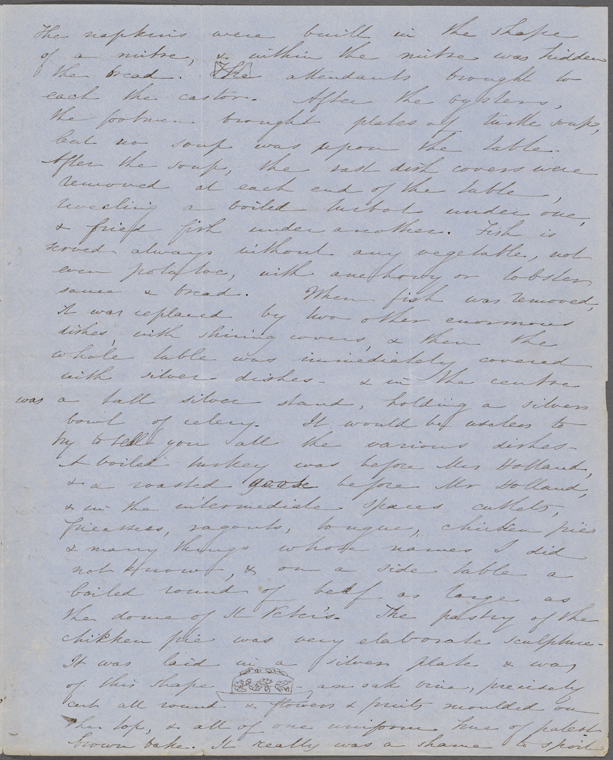 The napkins were built in the shape
of a mitre, & within the mitre was hidden
the bread. The attendants brought to
each the castor. After the oysters,
the footmen brought plates of turtle soup,
but no soup was upon the table.
After the soup, the vast dish covers were
removed at each end of the table,
revealing a boiled turbot under one,
& fried fish under another. Fish is
served always without any vegetable, not
even potatoe, with anchovy or lobster
sauce & bread. When fish was removed,
it was replaced by two other enormous
dishes, with shining covers, & then the
whole table was immediately covered
with silver dishes - & in the centre
was a tall silver stand, holding a silver
bowl of celery. It would be useless to
try to tell you all the various dishes -
A boiled turkey was before Mrs Holland,
& a roasted goose before Mr Holland,
& in the intermediate spaces, cutlets,
fricassees, ragouts, tongue, chicken pies
& many things whose names I did
not know, & on a side table a
boiled round of beef as large as
the dome of St Peter's. The pastry of the
chikken pie was very elaborate sculpture -
It was laid in a silver plate & was
of this shape -, an oak vine, precisely
cut all round & flowers & fruits moulded on
the top, & all of one uniform hue of palest
brown bake. It really was a shame to spoil